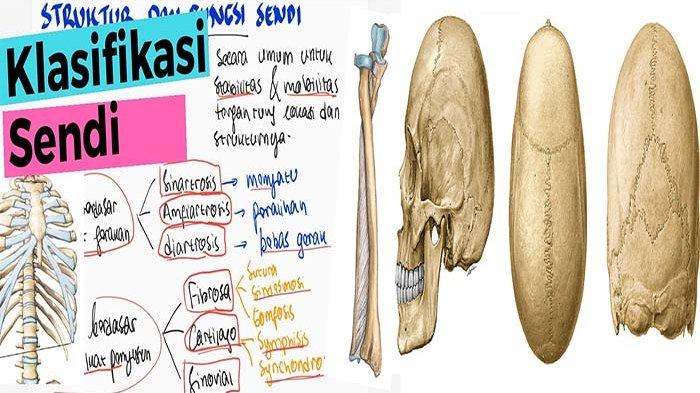 STRUKTUR DAN FUNGSI SENDI
Klasifikasi
Sendi
Secara umum untuk
stabilitas & mobilitas
tergantung lokasi dan
strukturnya.
berdasar
gerakan
Sinartrosis → menyatu
Ampiartrosis → peralihan
diartrosis → bebas gerak
berdasar
Fibrosa
Sutura
Sindesmosi
Gomposis
Cartilago
Symphisis
Synchondro
Sinovial